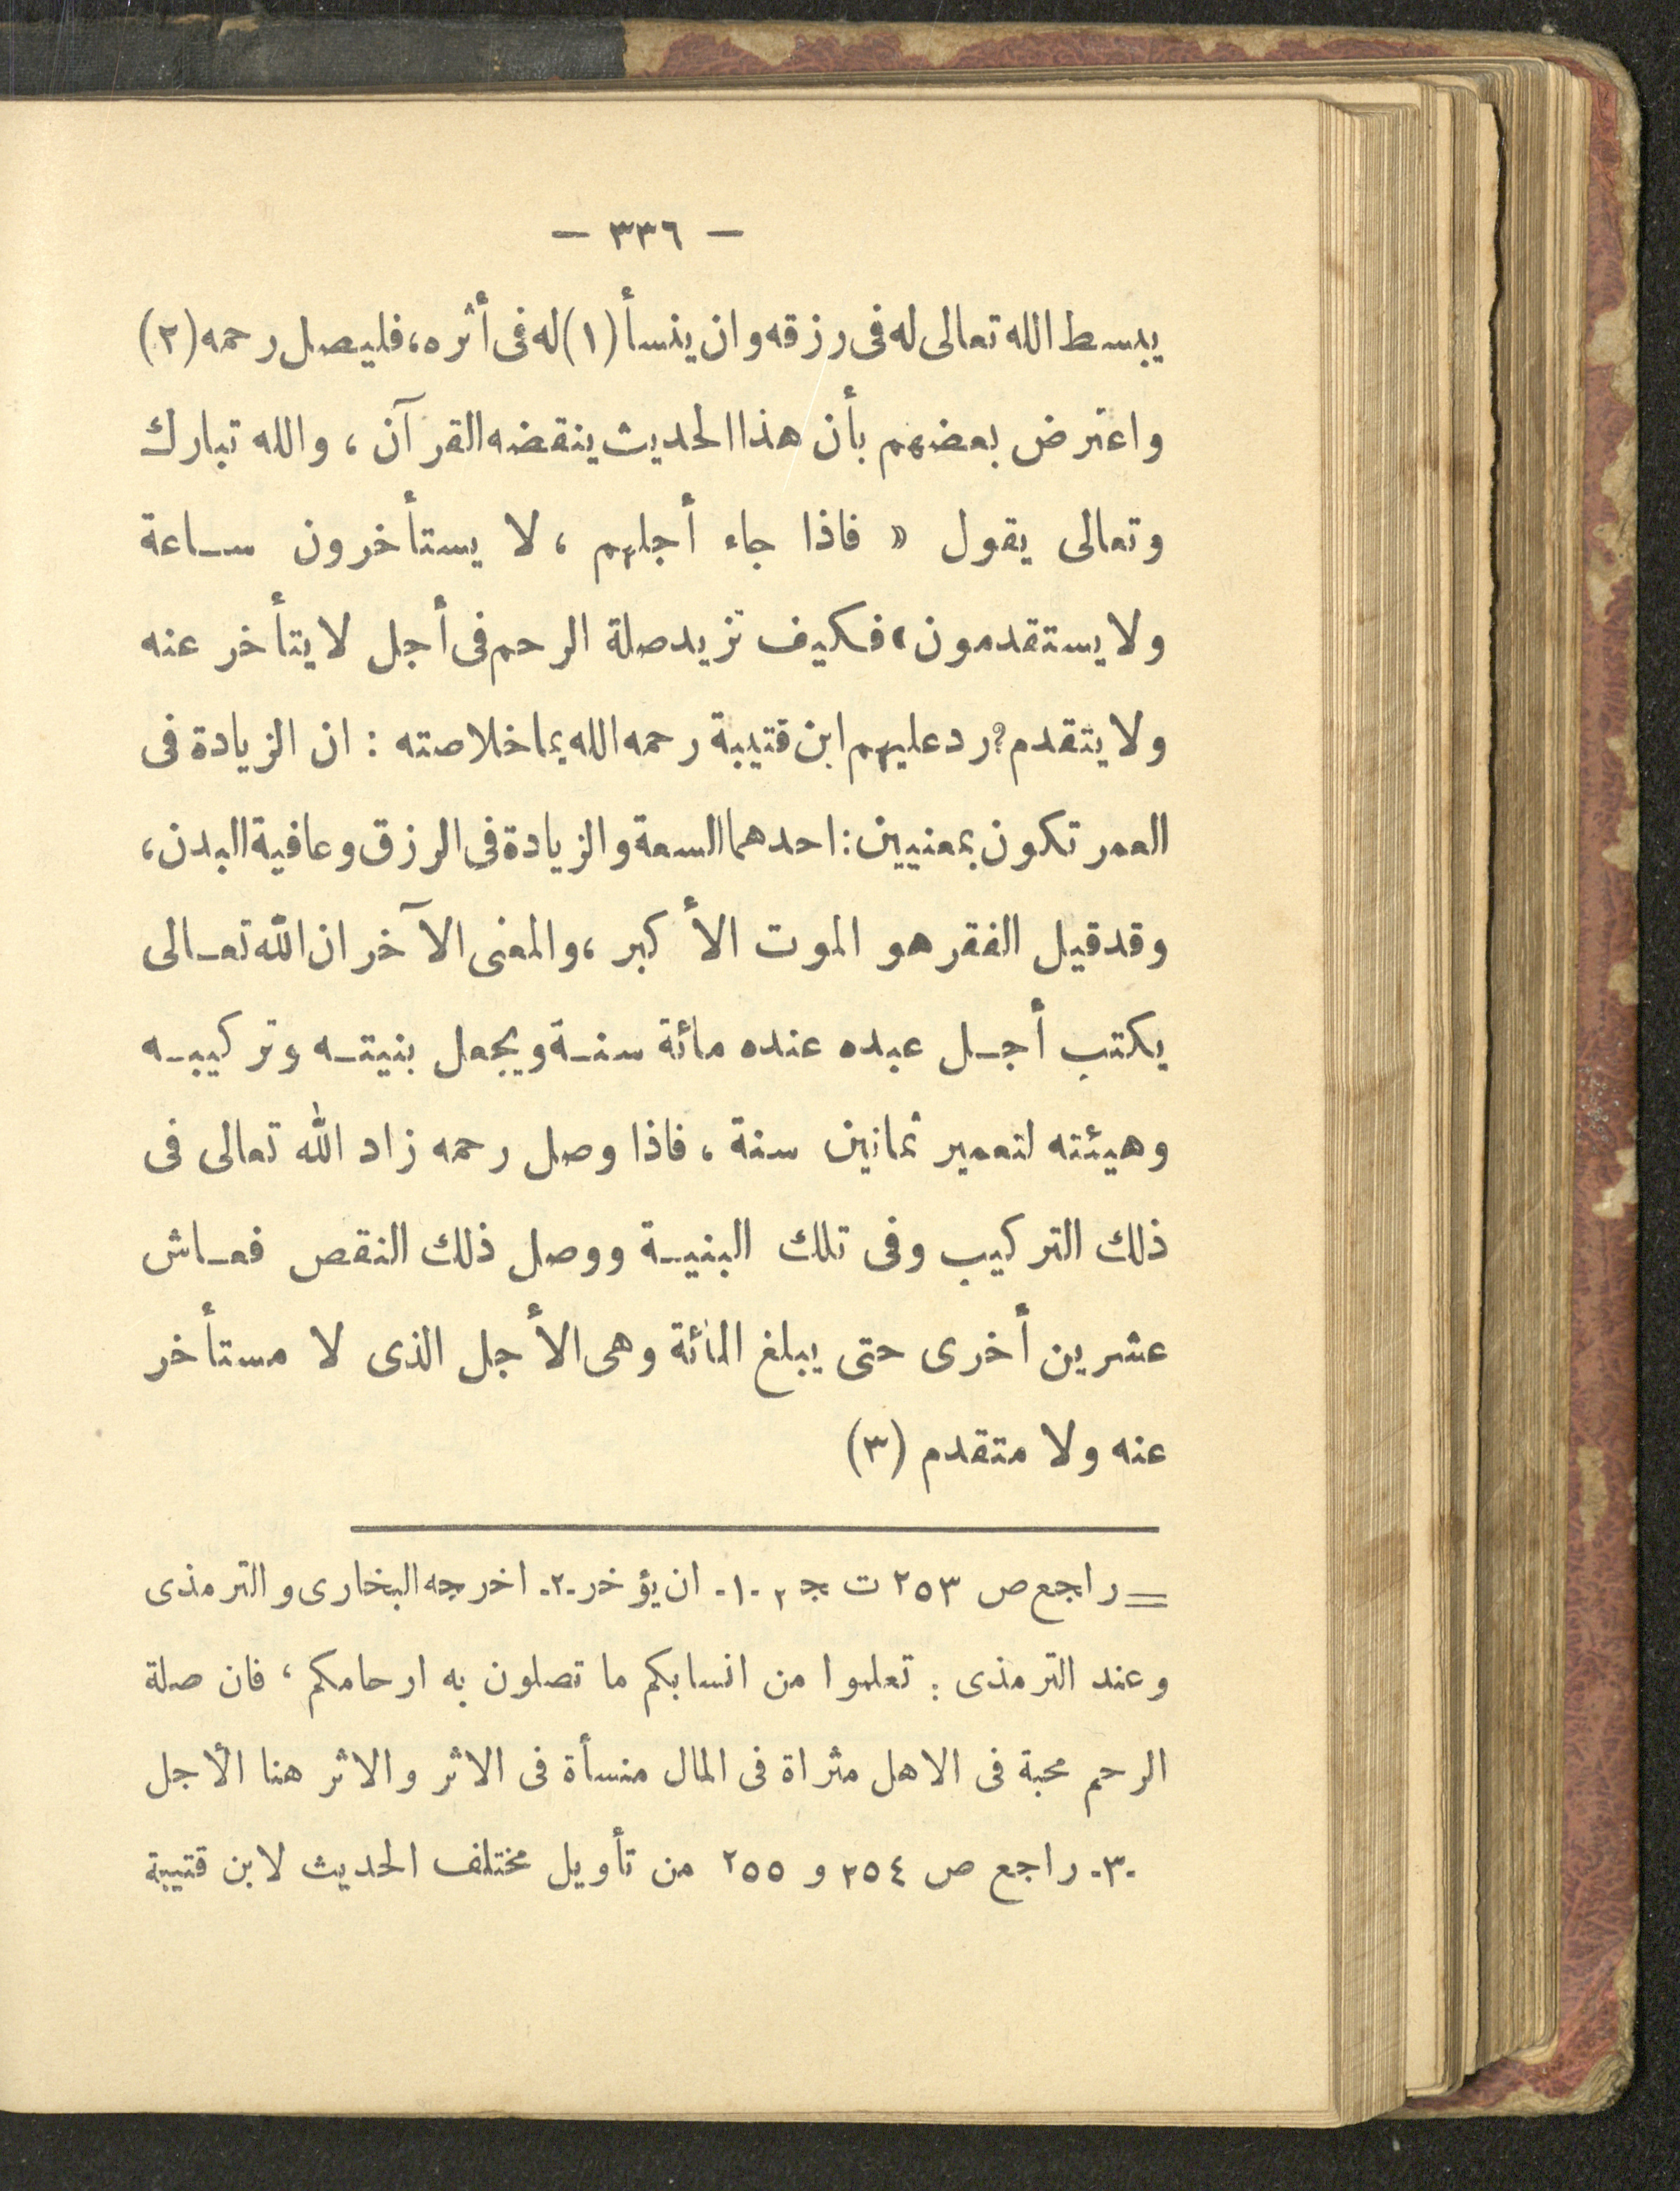 — ٣٣٦ —
يبسط الله تعالى له فى رزقه وان ينسأ (١) له فى أثره، فليصل رحمه (٢)
واعترض بعضهم بأن هذا الحديث ينقضه القرآن ، والله تبارك
وتعالى يقول « فاذا جاء أجلهم ، لا يستأخرون ساعة
ولا يستقدمون» فكيف تزيد صلة الرحم فى أجل لا يتأخر عنه
ولا يتقدم؟ رد عليهم ابن قتيبة رحمه الله بما خلاصته : ان الزيادة فى
العمر تكون بمعنيين: احدهما السعة والزيادة فى الرزق وعافية البدن،
وقد قيل الفقر هو الموت الأكبر ، والمعنى الآخر ان الله تعالى
يكتب أجل عبده عنده مائة سنة ويجعل بنيته وتركيبه
وهيئته لتعمير ثمانين سنة ، فاذا وصل رحمه زاد الله تعالى فى
ذلك التركيب وفى تلك البنية ووصل ذلك النقص فعاش
عشرين أخرى حتى يبلغ المائة وهى الأجل الذى لا مستأخر
عنه ولا متقدم (٣)
= راجع ص ٢٥٣ ت ج ٢ -١- ان يؤخر -٢- اخرجه البخارى والترمذى
وعند الترمذى : تعلموا من انسابكم ما تصلون به ارحامكم ، فان صلة
الرحم محبة فى الاهل مثراة فى المال منسأة فى الاثر والاثر هنا الأجل
-٣- راجع ص ٢٥٤ و ٢٥٥ من تأويل مختلف الحديث لابن قتيبة